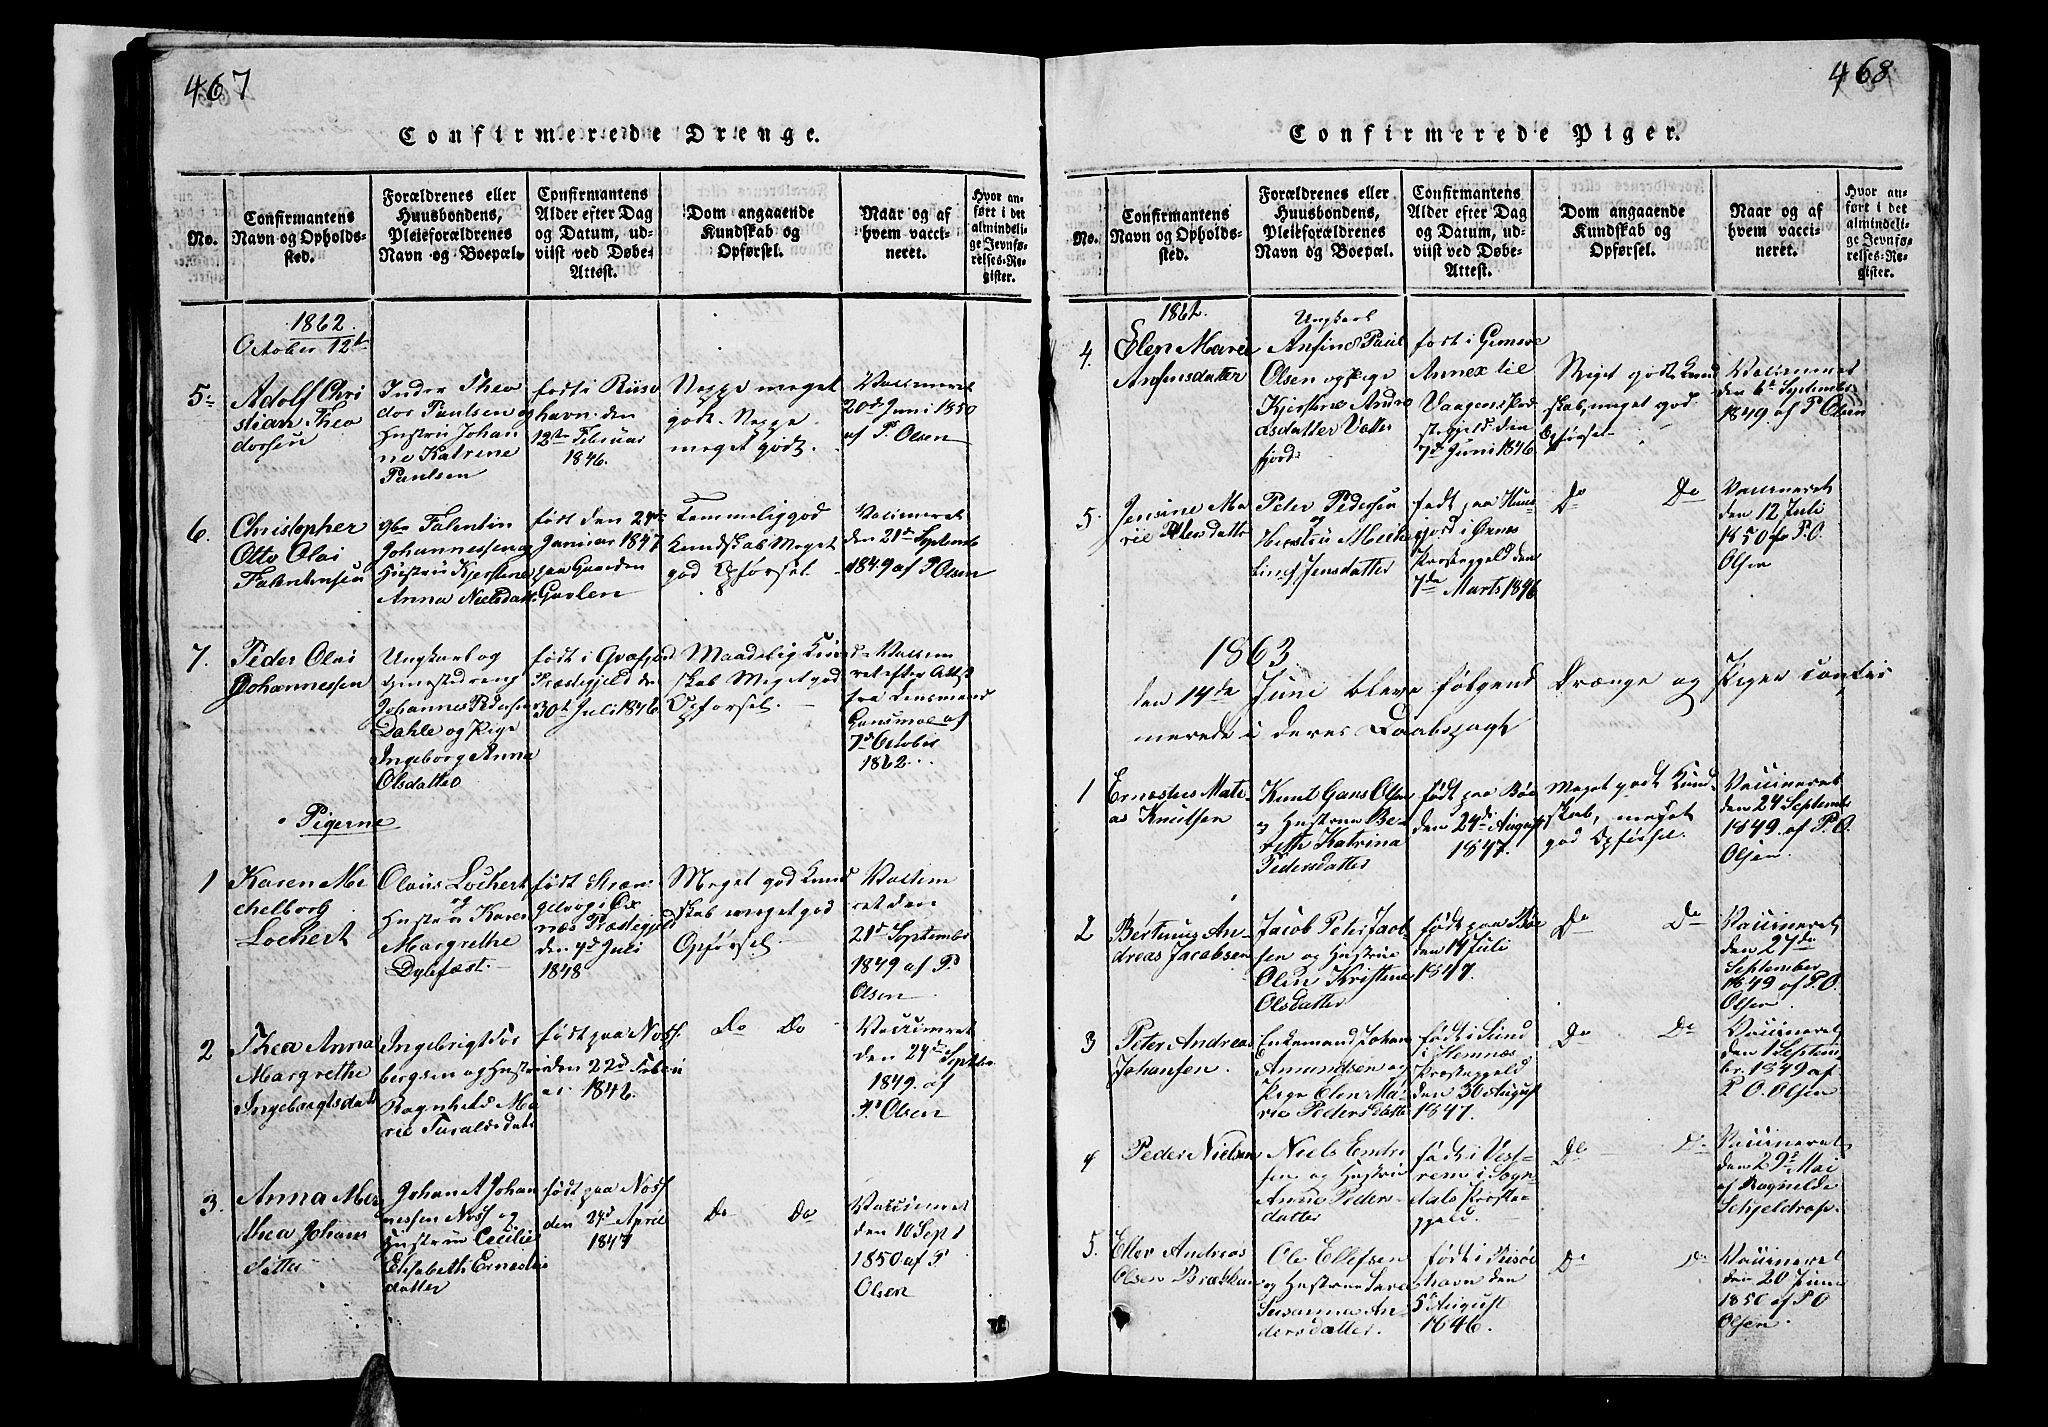 467
Confirmerede Drenge.
No.
Confirmantens
Navn og Opholds-
sted.
Forældrenes eller
Huusbondens,
Pleieforældrenes
Navn og Boepæl.
Confirmantens
Alder efter Dag
og Datum, ud-
viist ved Døbe-
Attest.
Dom angaaende
Kundskab og
Opførsel.
Naar og af
hvem vacci-
neret.
Hvor an-
ført i det
almindeli-
ge Jevnfø-
relses-Re-
gister.
1862.
October 12te
5
Adolf Chri
stian Theo
dorsen
Theo
dor Paulsen og
Hustru Johan
ne Katrene
Paulsen
født i Riisø
havn den
12te Februar
1846.
Neppe meget
godt. Neppe
meget godt.
Vaccineret
20de Juni 1850
af P. Olsen
6.
Christopher
Otto Olai
Falentinsen
Falentin
Johannessen og
Hustru Kjerstene
Anna Nielsdatt.
født den 24de
Januar 1847
paa Gaarden
Gavlen
Temmelig god
Kundskab Meget
god Opførsel.
Vaccineret
den 21de Septemb
1849 af P Olsen
7.
Peder Olai
Johannessen
Ungkarl og
Johannes Pedersen
Dahle og Pige
Ingeborg Anna
Olsdatter
født i
Præstegjeld den
30te Juli 1846
Maadelig Kund-
skab Meget god
Opførsel.
Vaccine
ret efter Attest
fra Lensmand
af
7de October
1862
Pigerne
1
Karen Me
chelborg
Lockert
Olaus Lockert
og
Hustru Karen
Margrethe
Dylefæst.
født
i Ox
næs Præstegjeld
den 4de Juli
1848
Meget god Kund
skab meget god
Opførsel.
Vaccine
ret den
21de Septembr
1849 af P.
Olsen
2
Thea Anna
Margrethe
Ingebrigtsdatt
Ingebrigt Tor
bergsen og Hustru
Ragnhild Ma
rie
født paa Noss
den 22de Febru
ar 1846
Do Do
Vaccineret
den 24de Septbr
1849. af
P Olsen
3.
Anna Mar
thea Johans
datter
Johan A Johan
nessen Noss og
Hustru Cecilie
Elisabeth Ernestin
datter
født paa Noss
den 24de April
1847
Do Do
Vaccineret
den 10 Sept
1850 af P
Olsen
468
Confirmerede Piger.
No.
Confirmantens
Navn og Opholds-
sted.
Forældrenes eller
Huusbondens,
Pleieforældrenes
Navn og Boepæl.
Confirmantens
Alder efter Dag
og Datum, ud-
viist ved Døbe-
Attest.
Dom angaaende
Kundskab og
Opførsel.
Naar og af
hvem vacci-
neret.
Hvor an-
ført i det
almindeli-
ge Jevnfø-
relses-Re-
gister.
1862.
4.
Elen Marie
Anfinsdatter
Ungkarl
Anfind Paul
Olsen og Pige
Kjerstene Andre
asdatter Vatter
fjord
født i Gimsø
Annex til
Vaagens Præ
stegjeld den
7de Juni 1846
Meget godt Kund
skab, meget god
Opførsel
Vaccineret
den 6te Septembr
1849. af P Olsen
5.
Jensine Ma
rie Petersdatter
Peter Pedersen
og
Hustru
Jensdatter
født paa
fjord i Øxnes
Præstegjeld den
7de Marts 1846
Do Do
Vaccineret
den 12 Juli
1850 af P. O.
Olsen
1863.
den 14de Juni bleve følgende Drænge og Piger confir
merede i deres Daabspagt
1
Ernestus Mati
as Knutsen
Knut Gans Olsen
og Hustrue Be-
rette Katrina
Pedersdatter
født paa Bøe
den 24de August
1847.
Meget godt Kund-
skab, meget
god Opførsel.
Vaccineret
den 24 Septembr
1849. af P. O.
Olsen.
2
Bertinus An-
dreas Jacobsen
Jacob Peter Jacob-
sen og Hustrue
Olin Kristine
Olsdatter
født paa Bøe
den 14 Juli
1847.
Do Do
Vaccineret
den 27de
September
1849 af P. O.
Olsen.
3
Peter Andreas
Johansen.
Enkemand Johan
Amundsen og
Pige Elen Ma-
rie Pedersdatter
født i Sund
i Hemnæs
Præstegjeld
den 30 August
1847.
Do Do
Vaccineret
den 1 Septem
br. 1849 af
P. O. Olsen
4
Peder Nielsen
Niels Endri
sen og Hustrue
Anne Peders
datter
født i Vest-
rem i Sogn-
dals Præste-
gjeld.
Do Do
Vaccineret
den 29de Mai
af Ragnilde
Schjeldrop.
5.
Eller Andreas
Olsen
Ole Ellefsen
og Hustrue Sara
Susanna An-
dersdatter.
født i Risø
havn den
5te August
1846.
Do Do
Vaccineret
den 20 Juni
1850 af P O
Olsen